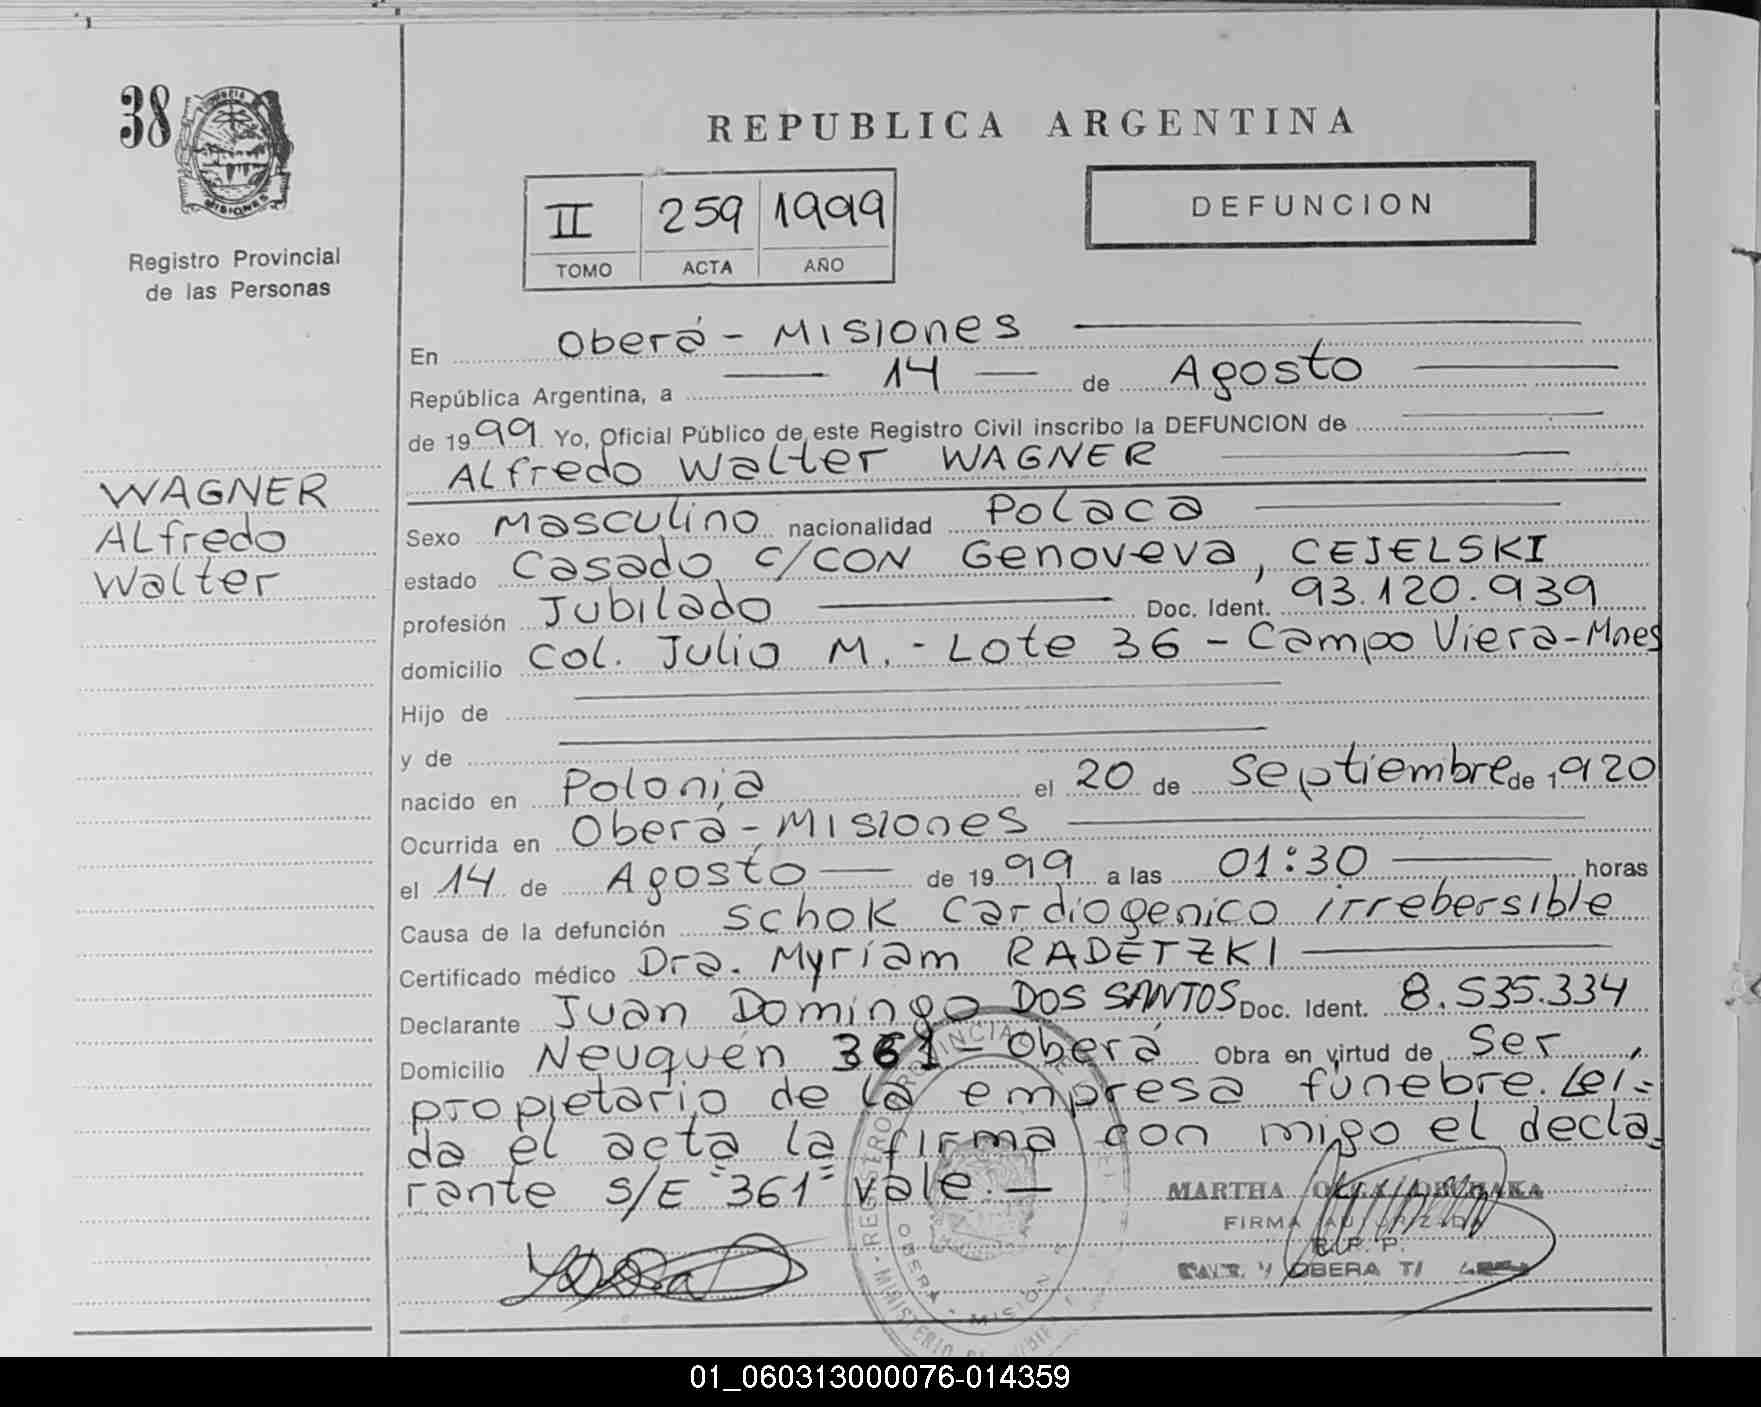 38
MISIONES
Registro Provincial
de las Personas
REPUBLICA ARGENTINA
II 259 1999
TOMO ACTA AÑO
DEFUNCION
WAGNER
ALfredo
Walter
En Oberá - Misiones
República Argentina, a 14 de Agosto
de 1999. Yo, Oficial Público de este Registro Civil inscribo la DEFUNCION de
ALfredo Walter WAGNER
Sexo Masculino nacionalidad Polaca
estado Casado c/CON Genoveva, CEJELSKI
profesión Jubilado Doc. Ident. 93.120.939
domicilio Col. Julio M. - Lote 36 - Campo Viera - Mnes
Hijo de
y de
nacido en Polonia el 20 de Septiembre de 1920
Ocurrida en Oberá - Misiones
el 14 de Agosto de 1999 a las 01:30 horas
Causa de la defunción Schok Cardiogenico irrebersible
Certificado médico Dra. Myriam RADETZKI
Declarante Juan Domingo DOS SANTOS Doc. Ident. 8.535.334
Domicilio Neuquén 361 - Oberá Obra en virtud de Ser
propietario de la empresa fúnebre. Leí=
da el acta la firma con migo el decla_
rante S/E "361" vale. —
REGISTRO PROVINCIAL
OBERA - MISIONES
MINISTERIO
MARTHA
FIRMA AUTORIZADA
R. P. P.
OBERA
01_060313000076-014359